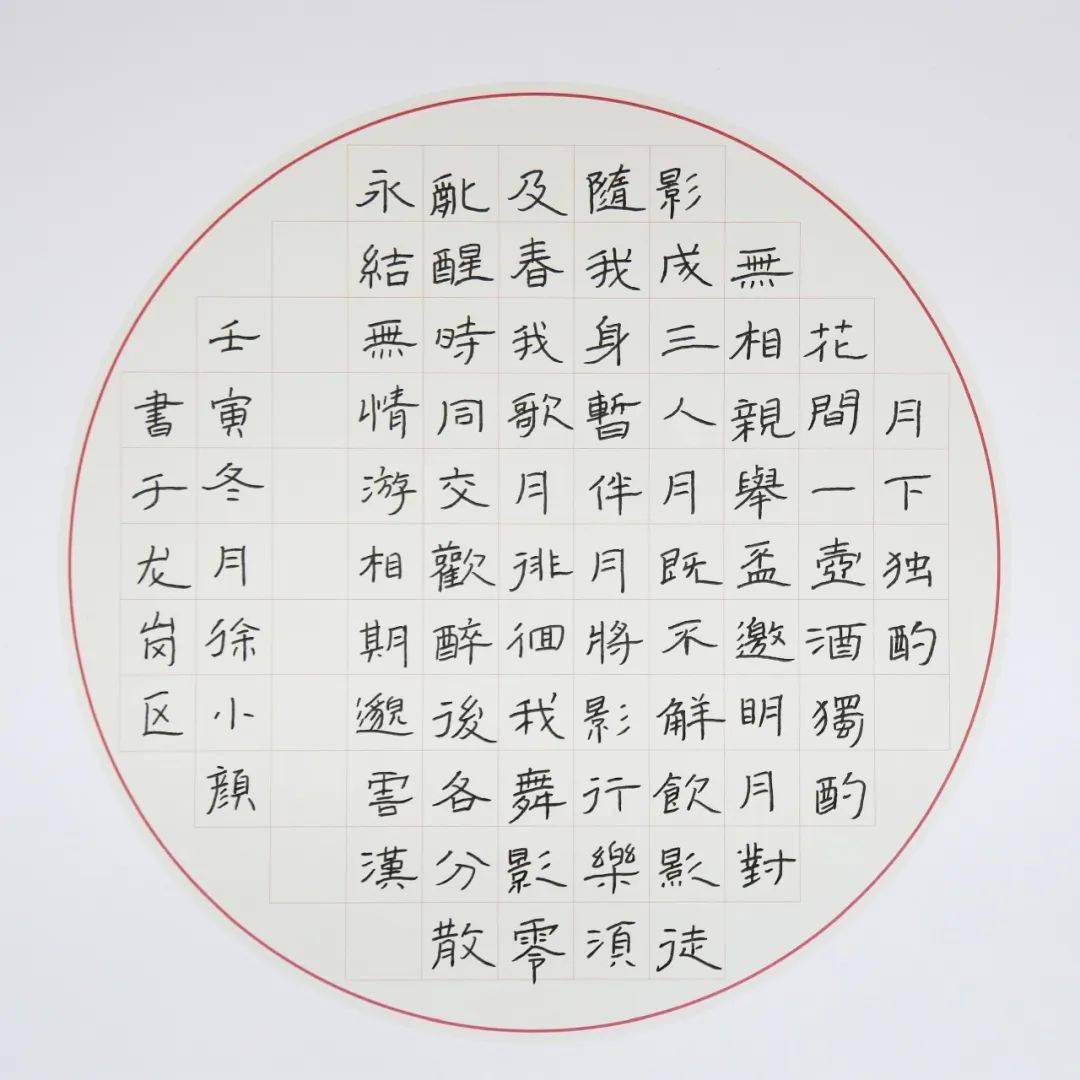 月下独酌
花間一壺酒獨酌
無相親舉盃邀明月對
影成三人月既不解飲影徒
隨我身暫伴月將影行樂須
及春我歌月徘徊我舞影零
亂醒時同交歡醉後各分散
永結無情游相期邈雲漢
壬寅冬月徐小顔
書于龙岗区